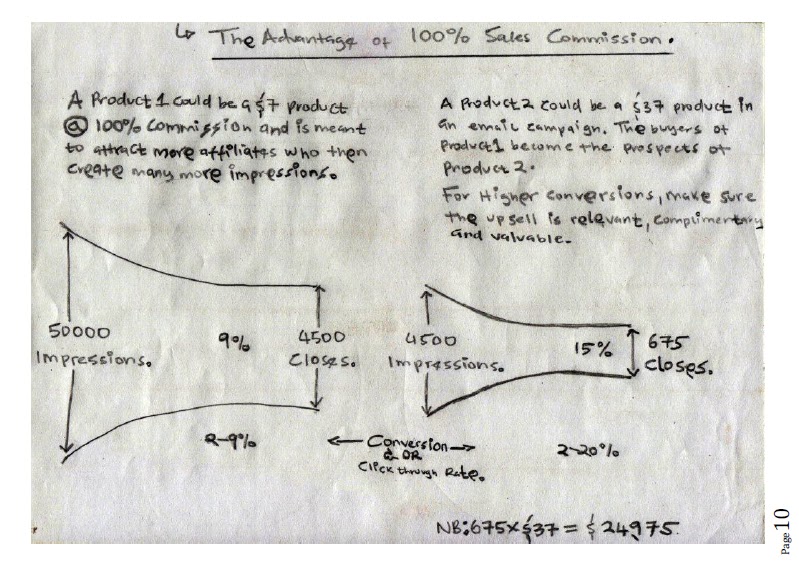 ↳ The Advantage of 100% Sales Commission.
A Product 1 could be a $7 product
@ 100% commission and is meant
to attract more affiliates who then
create many more impressions.
A Product 2 could be a $37 product in
an email campaign. The buyers of
Product1 become the prospects of
Product 2.
For Higher conversions, make sure
the upsell is relevant, complimentary
and valuable.
50000
Impressions.
9%
4500
Closes.
2-9%
4500
Impressions.
15%
675
Closes.
2-20%
← Conversion →
& OR
Click through Rate.
NB: 675 x $37 = $24,975.
Page 10